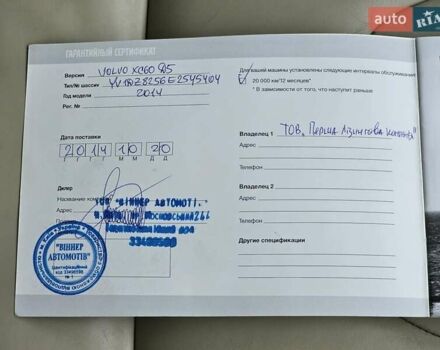 auto RIA
ГАРАНТИЙНЫЙ СЕРТИФИКАТ
Версия VOLVO XC60 D5
Тип/№ шасси
Год модели 2014
Рег. №
Дата поставки
2014 10 20
Г Г Г Г М М Д Д
Дилер
Название
Адрес
ТОВ "ВІННЕР АВТОМОТІ
33400598
"ВІННЕР
АВТОМОТІВ"
Ідентифікаційний
код 33400598
Для вашей машины установлены следующие интервалы обслуживания
20 000 км/12 месяцев*
* В зависимости от того, что наступит раньше
Владелец 1 ТОВ „Перша лізингова компанія"
Адрес
Телефон
Владелец 2
Адрес
Телефон
Другие спецификации